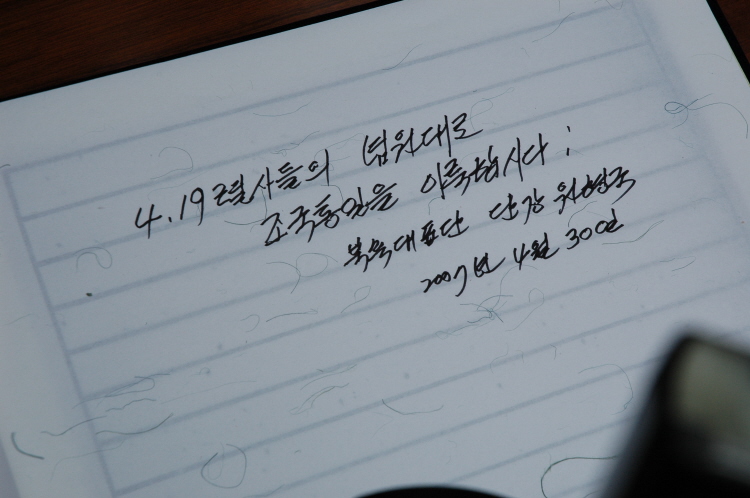 4.19 렬사들의 념원대로
조국통일을 이룩합시다!
북측대표단 단장 원형국
2007년 4월 30일